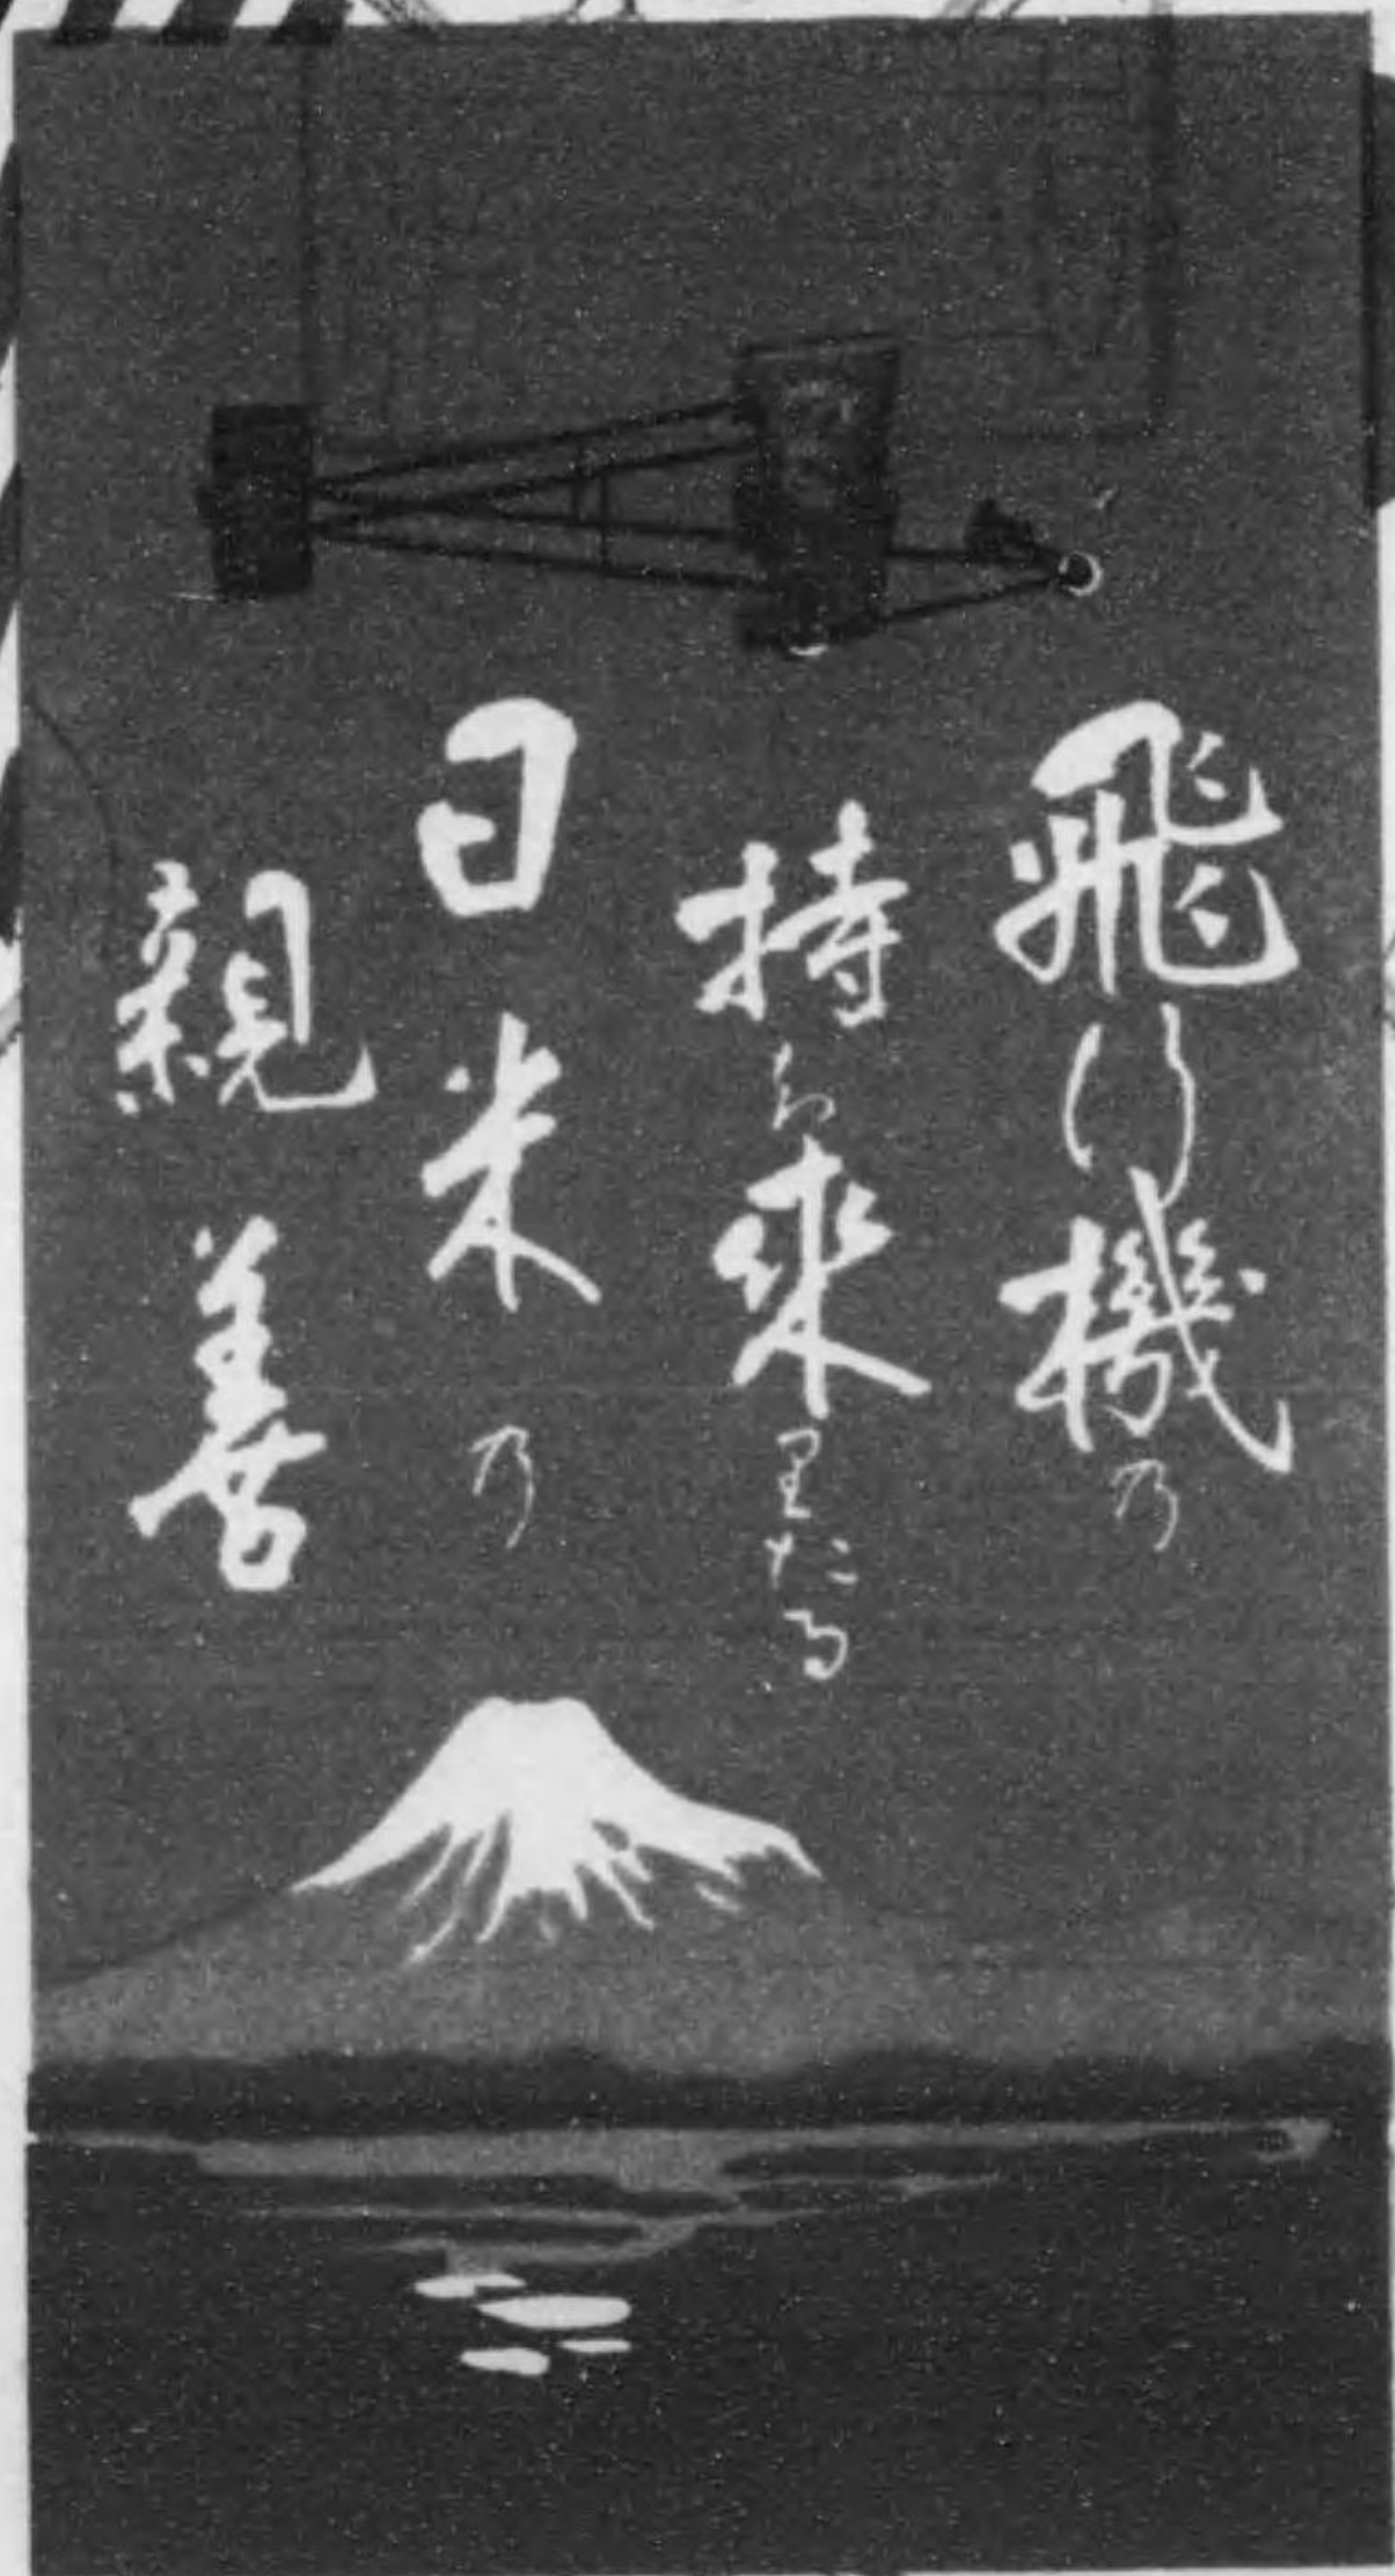 飛行機乃
持ち來りたる
日米乃
親善